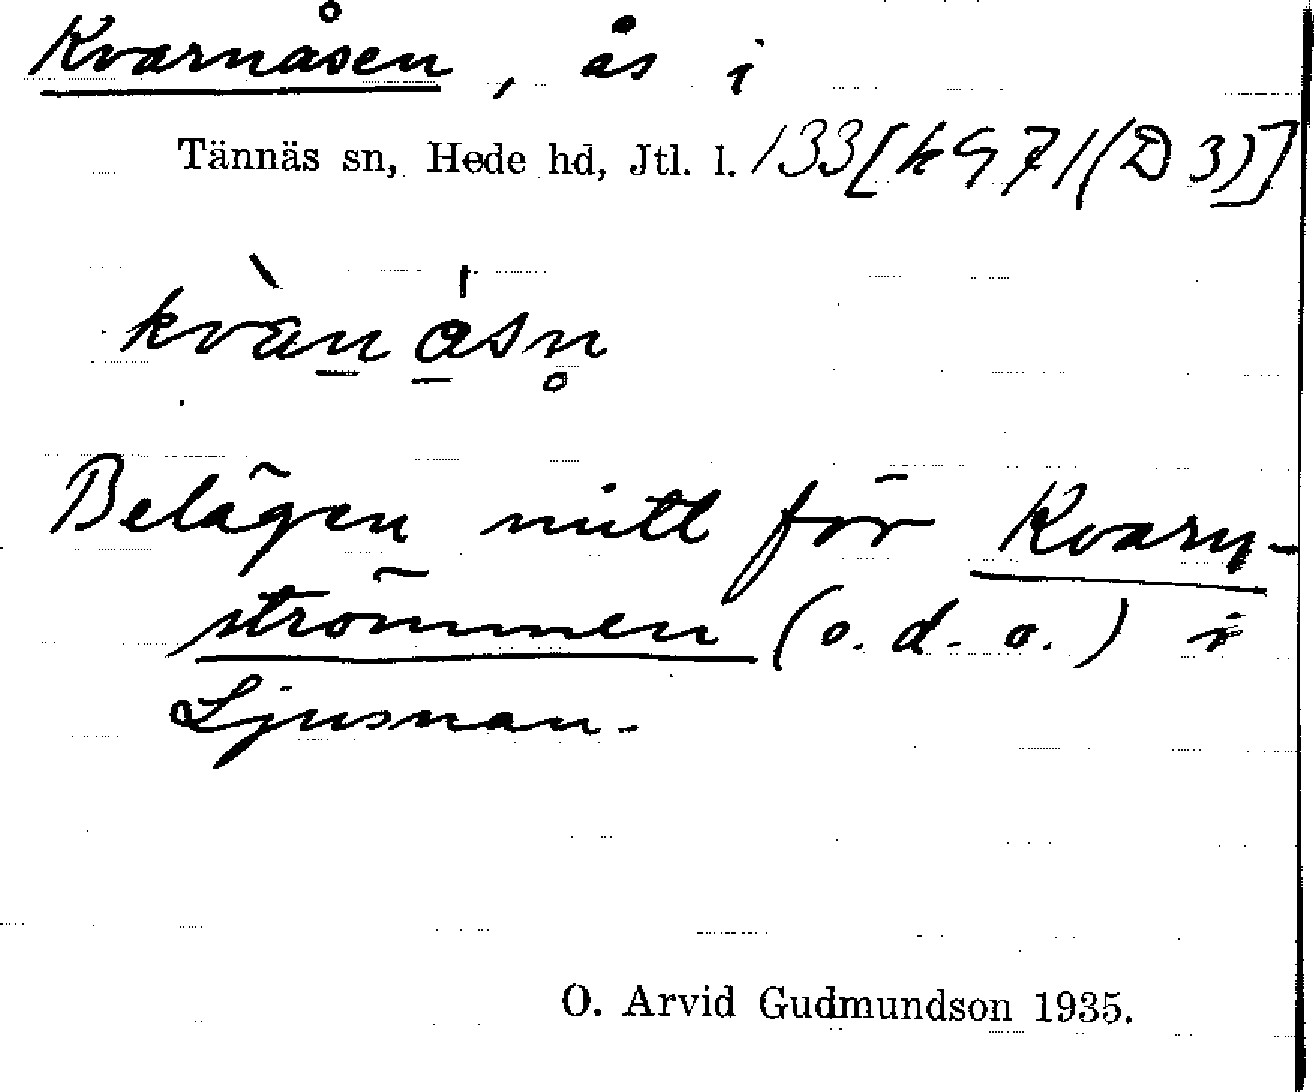 Kvarnåsen, ås i
Tännäs sn, Hede hd, Jtl. l. 133[k971(D3)]
kvànásn̥
Belägen mitt för Kvarn-
strömmen (s.d.o.) i
Ljusnan.
O. Arvid Gudmundson 1935.